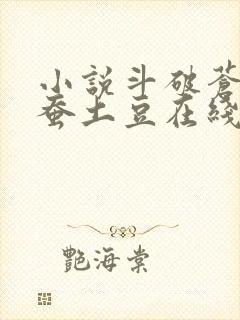 小說斗破蒼
蚕土豆在綫
艷海棠